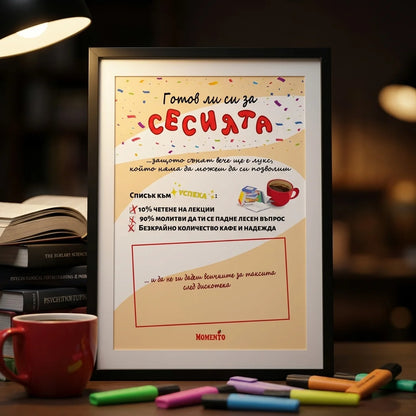 Готов ли си за
СЕСИЯТА
...защото сънят вече ще е лукс,
който няма да можеш да си позволиш
Списък към УСПЕХА :
10% ЧЕТЕНЕ НА ЛЕКЦИИ
90% МОЛИТВИ ДА ТИ СЕ ПАДНЕ ЛЕСЕН ВЪПРОС
БЕЗКРАЙНО КОЛИЧЕСТВО КАФЕ И НАДЕЖДА
... и да не ги дадеш всичките за таксита
след дискотека
MOMENTO